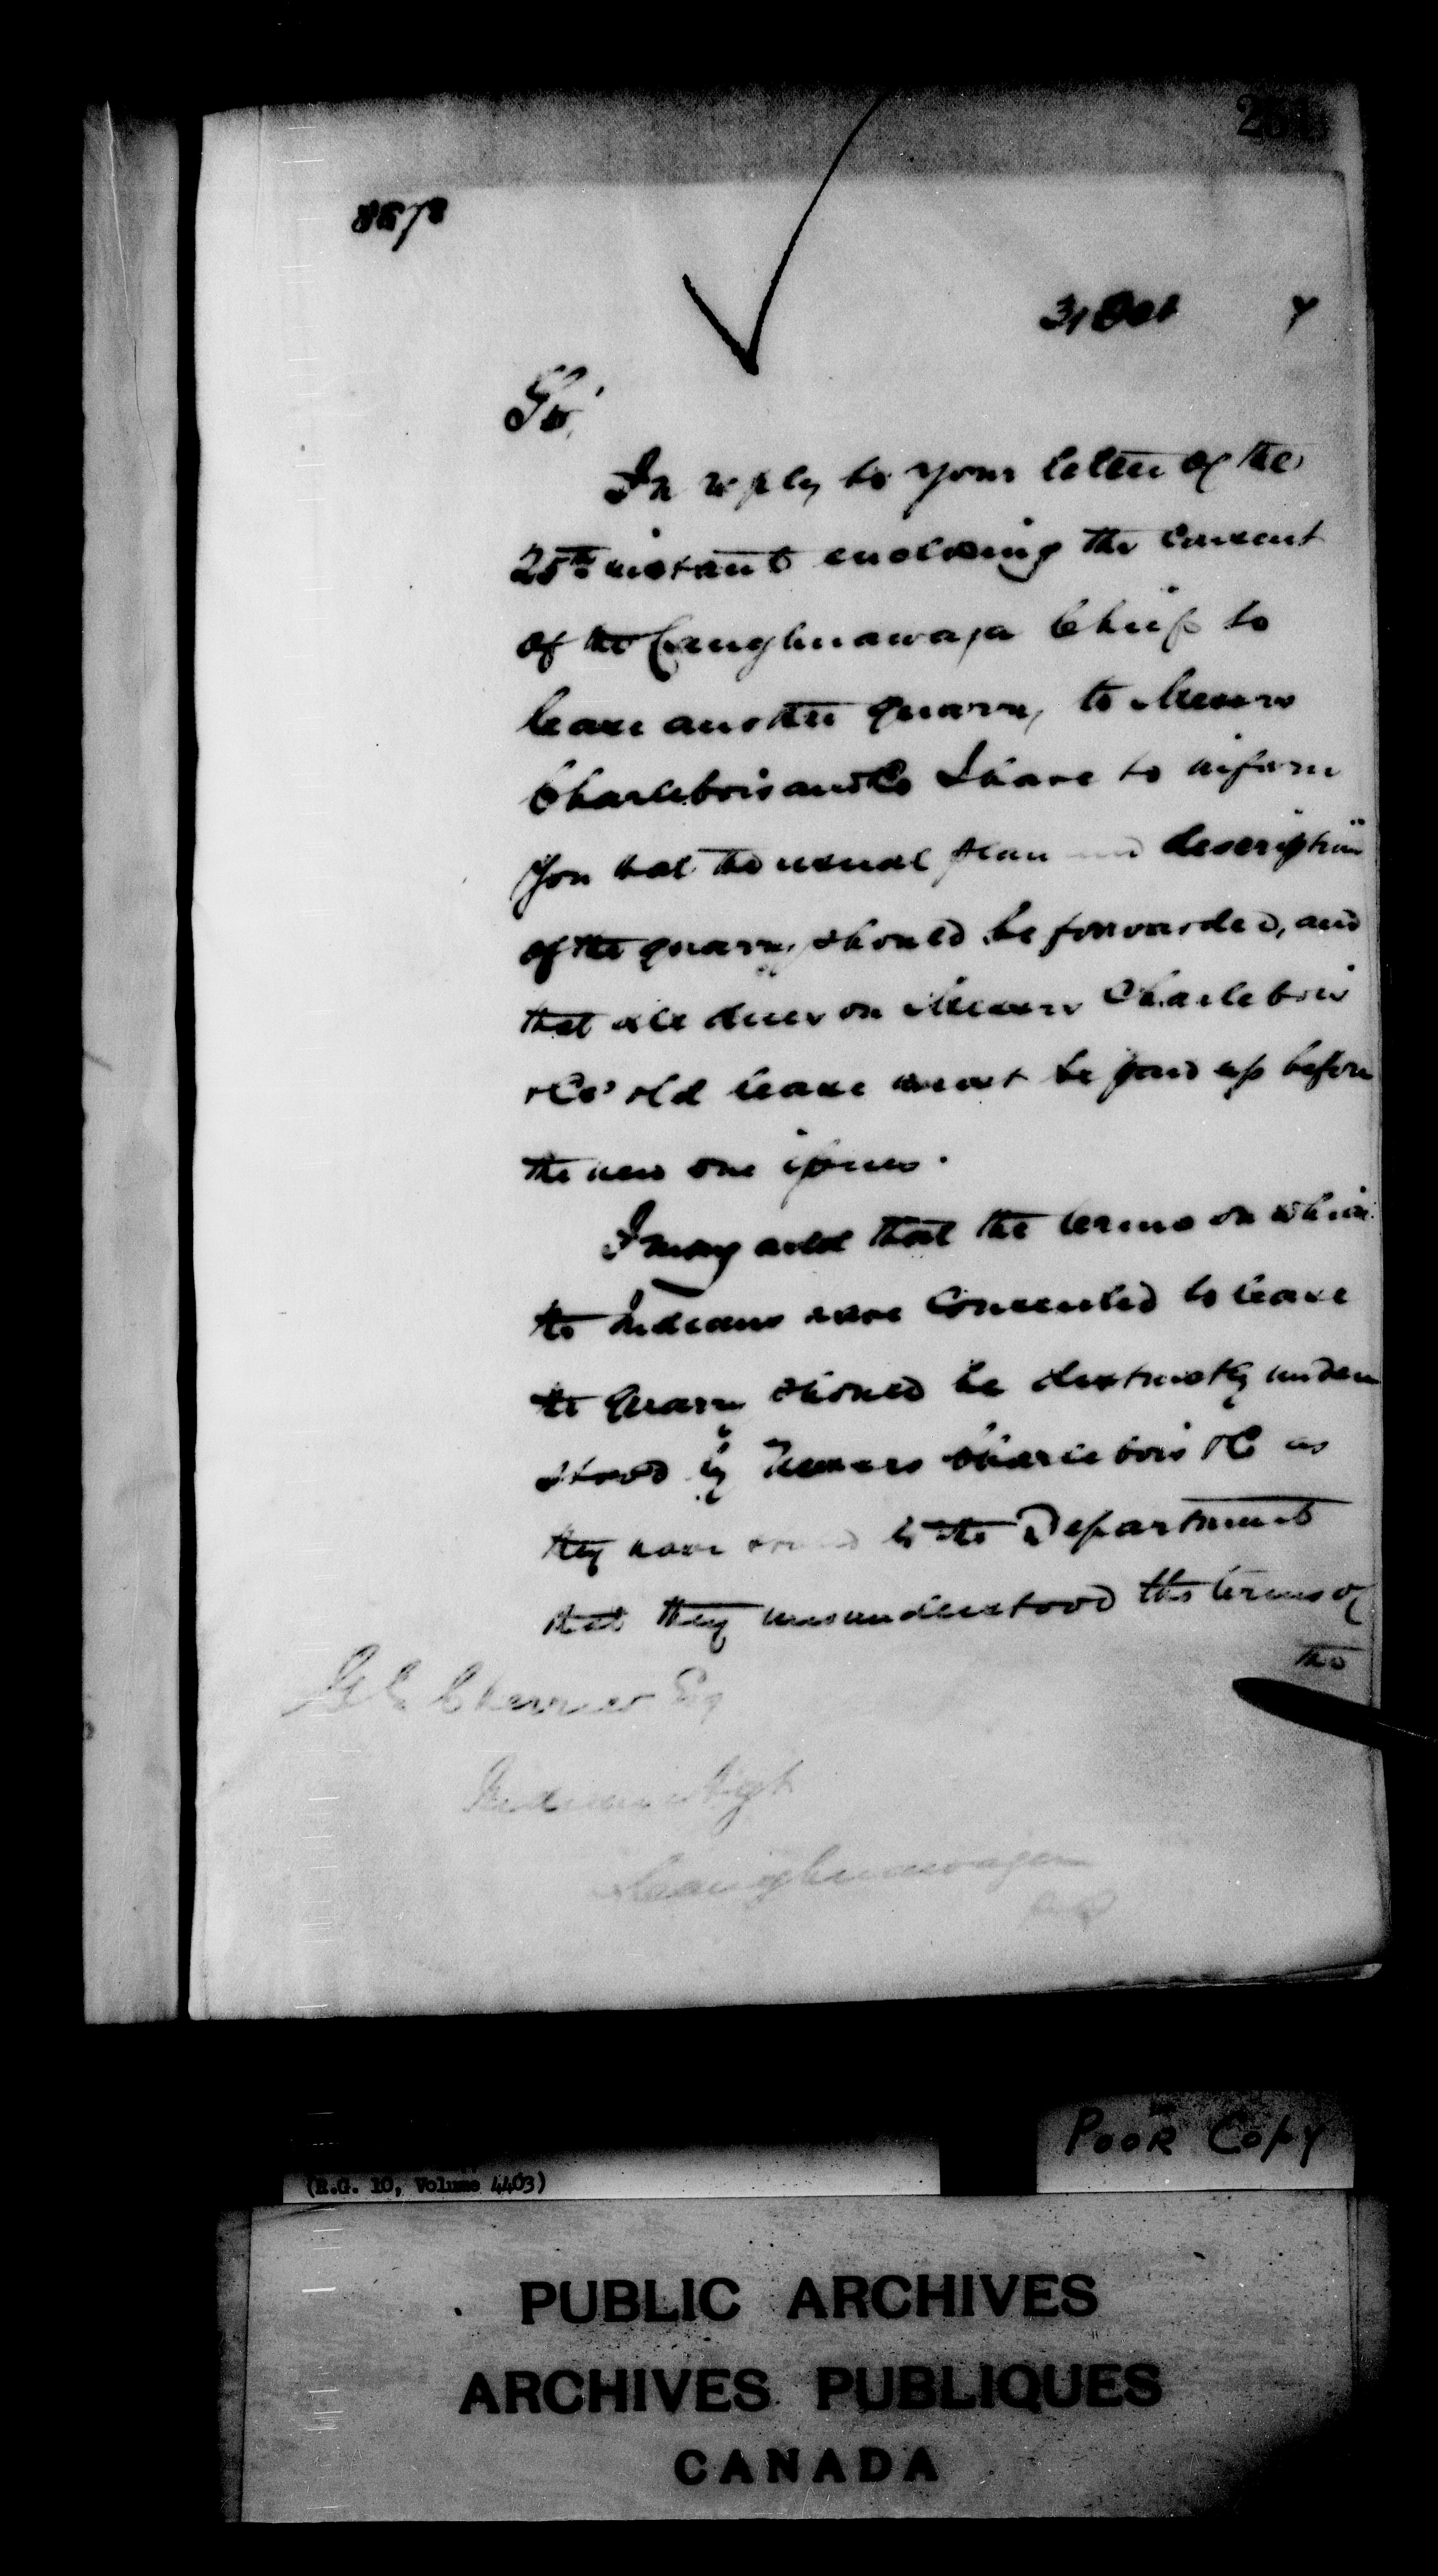 31 Oct 7
Sir,
In reply to your letter of the
25th instant enclosing the consent
of the Caughnawaga Chiefs to
lease another quarry to Messrs
Charlebois and Co I have to inform
you that the usual plan and description
of the quarry should be forwarded, and
that all dues on Messrs Charlebois
& Co's old lease must be paid up before
the new one issues.
I may add that the terms on which
the Indians have consented to lease
the Quarry should be distinctly under
stood by Messrs Charlebois & Co as
they have to the Department
that they misunderstood the terms of
the
G E Cherrier Esq
Indian Agt
Caughnawaga
P.Q
Poor Copy
(R.G. 10, Volume 4403)
PUBLIC ARCHIVES
ARCHIVES PUBLIQUES
CANADA